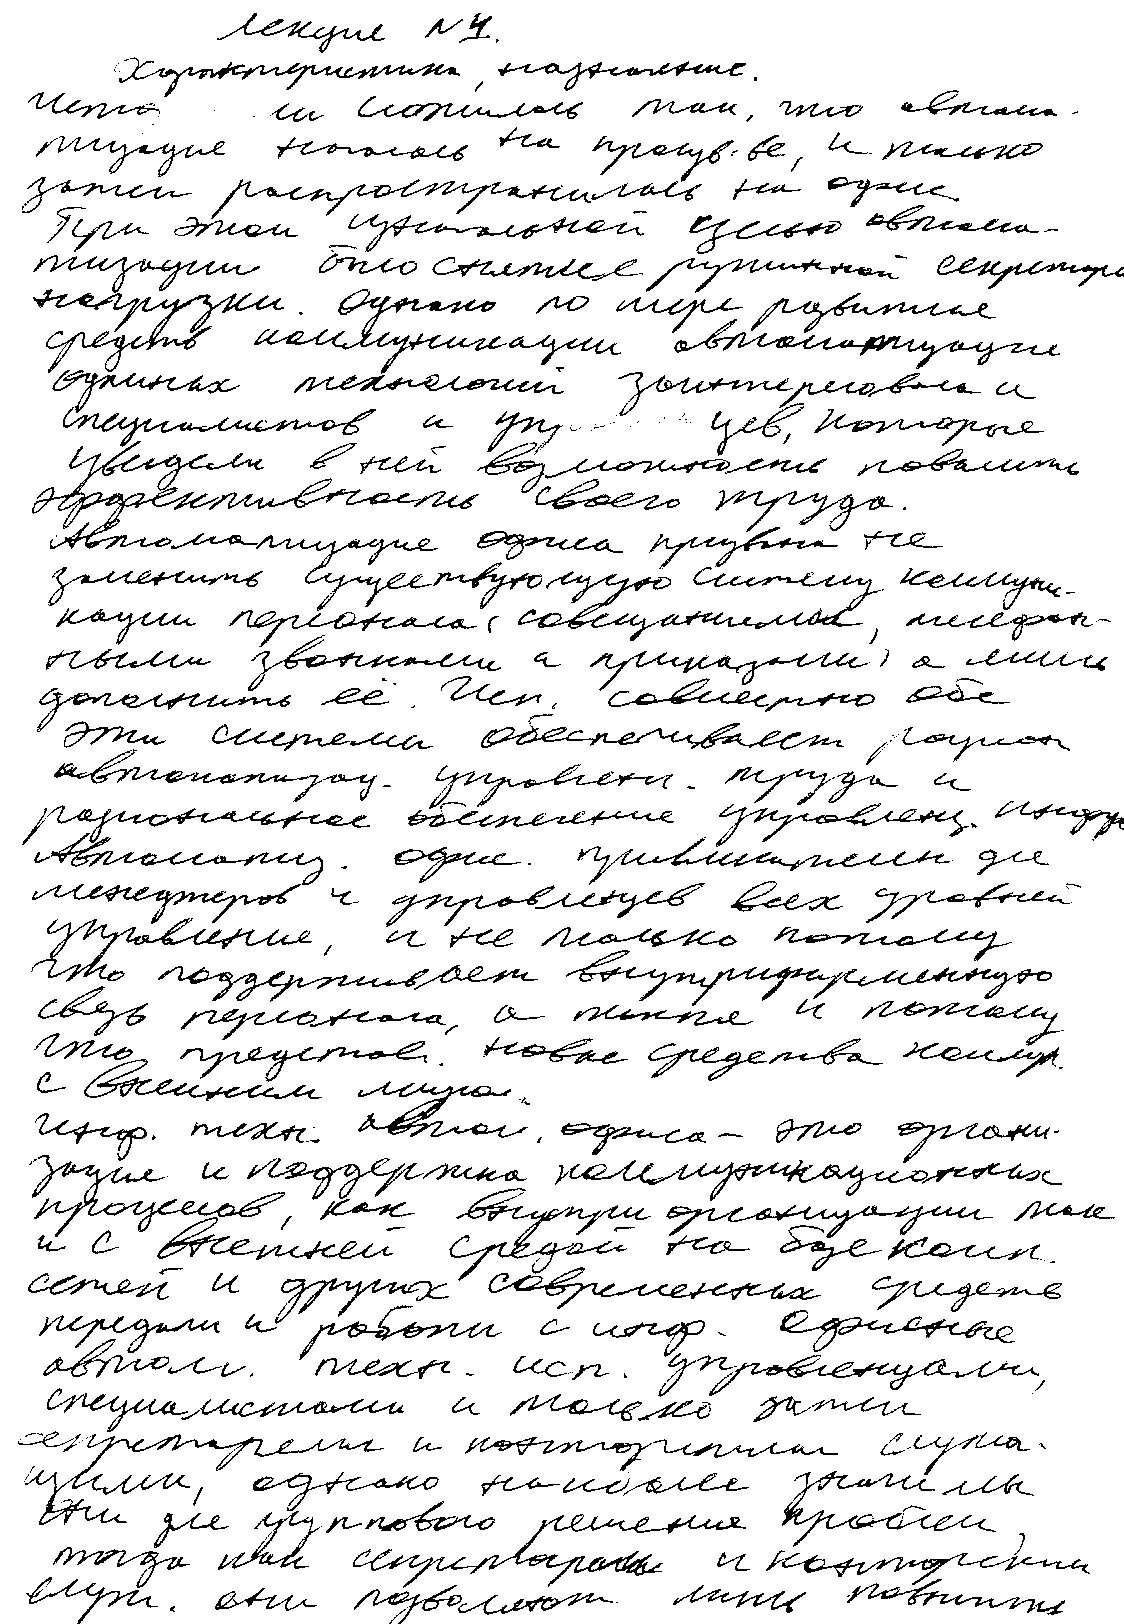 лекция №4.
Характеристика, назначение.
сложилось так, что автома-
тизация началась на произв-ве, и только
затем распространилась на офис
При этом изначальной целью автома-
тизации было снятие рутинной секретарс
нагрузки. Однако по мере развития
средств коммуникации автоматизация
офисных технологий заинтересовала и
специалистов и упр цев, которые
увидели в ней возможность повысить
эффективность своего труда.
Автоматизация офиса призвана не
заменить существующую систему коммуни-
кации персонала (совещаниями, телефон-
ными звонками и приказами) а лишь
дополнить её. Исп. совместно обе
эти системы обеспечивает рацион
автоматизац. управлен. труда и
рациональное обеспечение управленч. инфор
Автоматиз. офис. привлекателен для
менеджеров и управленцев всех уровней
управления, и не только потому
что поддерживает внутрифирменную
связь персонала, а также и потому
что представ. новые средства коммун.
с внешним миром.
Инф. техн. автом. офиса – это органи-
зация и поддержка коммуникационных
процессов, как внутри организации так
и с внешней средой на базе комп.
сетей и других современных средств
передачи и работы с инф. Офисные
автом. техн. исп. управленцами,
специалистами и только затем
секретарями и конторскими служа-
щими, однако наиболее значимы
они для группового решения проблем,
тогда как секретарям и конторским
служ. они позволяют лишь повысить